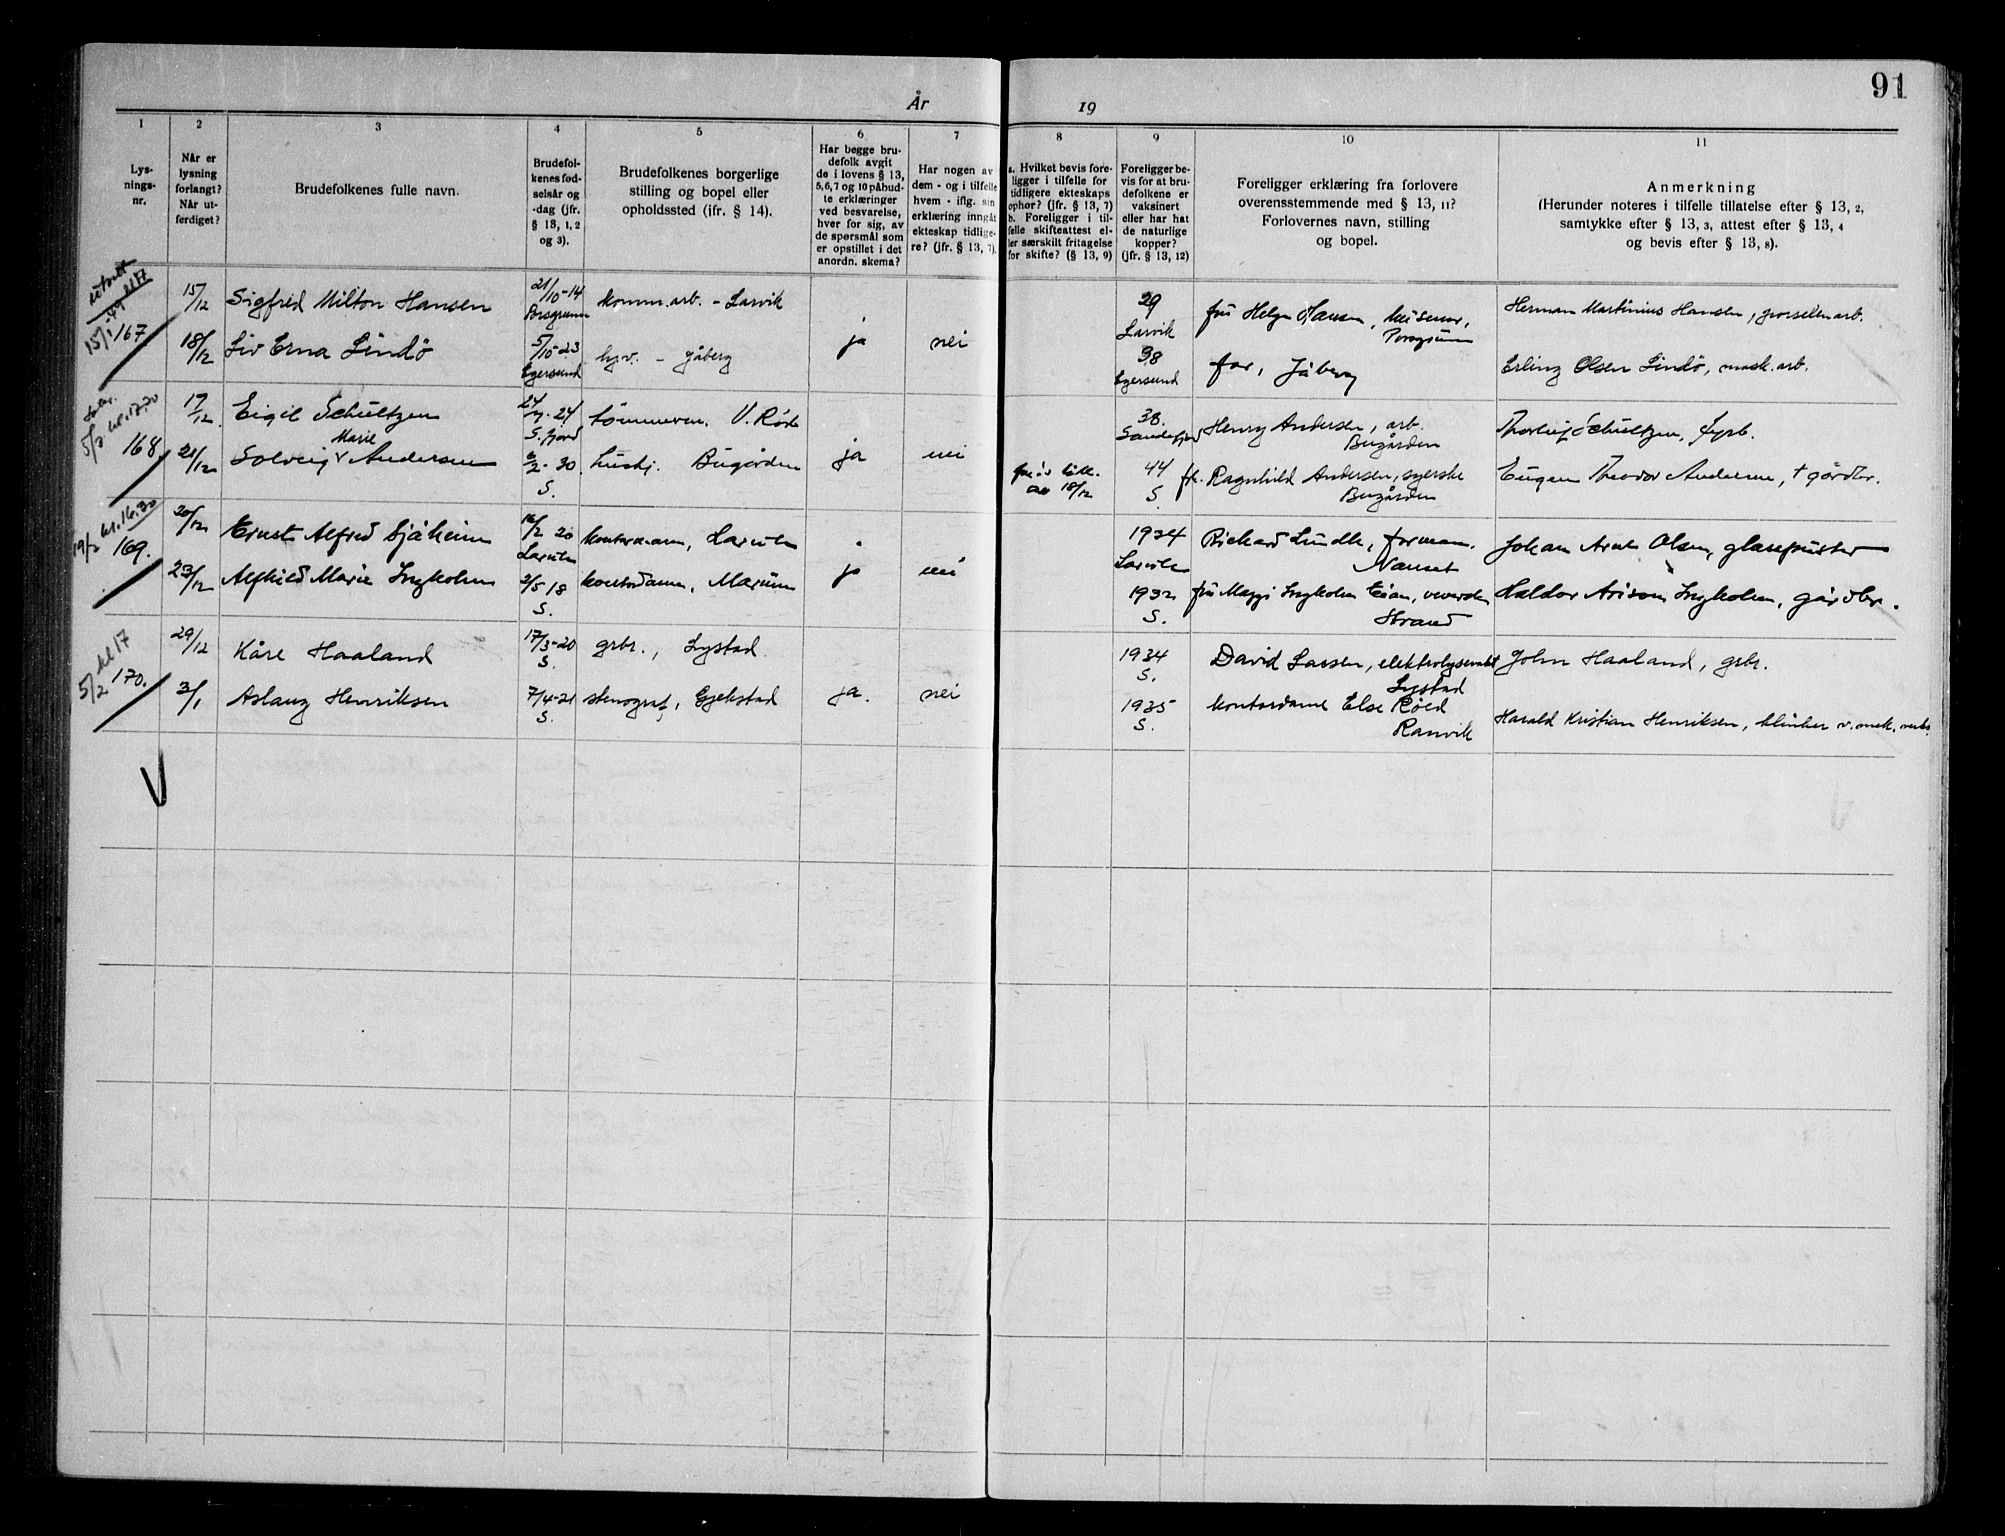 91
År 19
1 2 3 4 5 6 7 8 9 10 11
Lys-
nings-
nr.
Når er
lysning
forlangt?
Når ut-
ferdiget?
Brudefolkenes fulle navn.
Brudefol-
kenes fød-
selsår og
-dag (jfr.
§ 13, 1, 2
og 3).
Brudefolkenes borgerlige
stilling og bopel eller
opholdssted (ifr. § 14).
Har begge bru-
defolk avgit
de i lovens § 13,
5,6,7 og 10 påbud-
te erklæringer
ved besvarelse,
hver for sig, av
de spørsmål som
er opstillet i det
anordn. skema?
Har nogen av
dem - og i tilfelle
hvem - iflg. sin
erklæring inngåt
ekteskap tidlige-
re? (jfr. § 13, 7).
a. Hvilket bevis fore-
ligger i tilfelle for
tidligere ekteskaps
ophør? (jfr. § 13, 7)
b. Foreligger i til-
felle skifteattest el-
ler særskilt fritagelse
for skifte? (§ 13, 9)
Foreligger be-
vis for at bru-
defolkene er
vaksinert
eller har hat
de naturlige
kopper?
(jfr. § 13, 12)
Foreligger erklæring fra forlovere
overensstemmende med § 13, 11?
Forlovernes navn, stilling
og bopel.
Anmerkning
(Herunder noteres i tilfelle tillatelse efter § 13, 2,
samtykke efter § 13, 3, attest efter § 13, 4
og bevis efter § 13, 8).
15/1-49 kl 17
167
15/12 Sigfred Milton Hansen 21/10-14 Porsgrunn komm.arb. - Larvik 29 Larvik fru Helga Hansen, Porsgrunn Herman Martinius Hansen, porselenarb.
18/12 Liv Erna Lindö 5/10-23 Egersund hjv. - Jåberg ja nei 38 Egersund far, Jåberg Erling Olsen Lindö, mask.arb.
5/2 kl. 17.30
168
17/12 Eigil Schultzen 24 S.fjord V. Råd 38. Sandefjord Henry Andersen, arb. Bugården Thorleif Schultzen, fyrb.
21/12 Solveig Marie Andersen 2-30 S. hushj. Bugården ja nei av 18/12 44 S. frk. Ragnhild Andersen, syerske Bugården Eugen Theodor Andersen, † gårdbr.
19/2 kl. 16.30
169.
20/12 Ernst Alfred Sjåheim 16/2 20 Larvik kontormann, Larvik 1934 Larvik Rickard Lundh, formann. Nanset Johan Arnt Olsen, glasspuster
23/12 Alfhild Marie Ingholm 2/5 18 S. kontordame, Marum ja nei 1932 S. fru Maggi Ingholm Strand Haldor Ingholm, gårdbr.
5/2 kl 17
170.
29/12 Kåre Haaland 17/3-20 S. grbr., Lystad 1934 S. David Larsen, Lystad John Haaland, grbr.
3/1 Aslaug Henriksen 7/4-21 S. stenograf, Gjekstad ja. nei 1935 S. kontordame Else Röed Ranvik Harald Kristian Henriksen, klinker v. mek. verks.
V